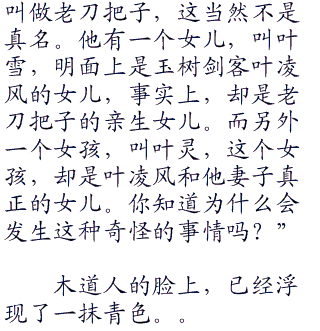 叫做老刀把子，这当然不是
真名。他有一个女儿，叫叶
雪，明面上是玉树剑客叶凌
风的女儿，事实上，却是老
刀把子的亲生女儿。而另外
一个女孩，叫叶灵，这个女
孩，却是叶凌风和他妻子真
正的女儿。你知道为什么会
发生这种奇怪的事情吗？”
木道人的脸上，已经浮
现了一抹青色。。